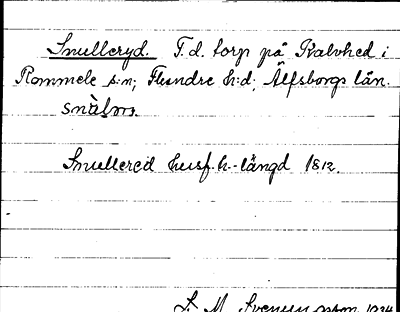 Snulleryd. F.d. torp på Kalvhed i
Rommele s:n; Flundre h:d; Älfsborgs län.
snà̀lm.
Snullered husf.h.-längd 1812.
S. M. Svenungsson 1934